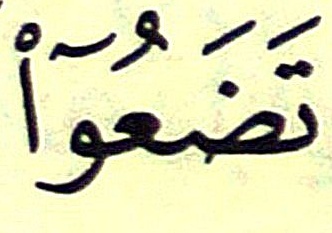 تَضَعُوٓا۟